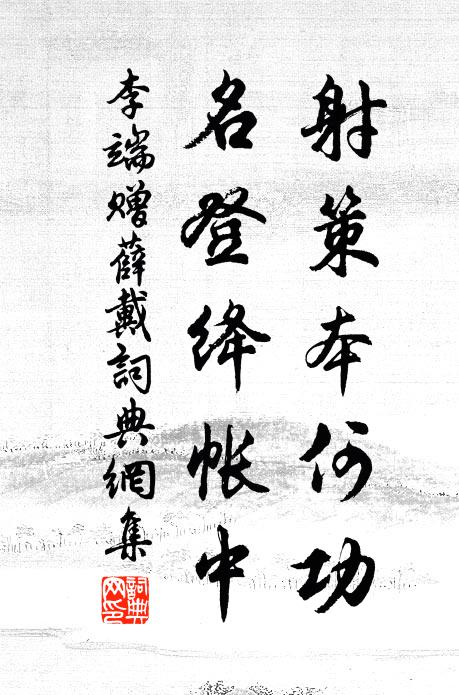 射策本何功
名登绛帐中
李端赠薛戴詞典網集
詞典网印